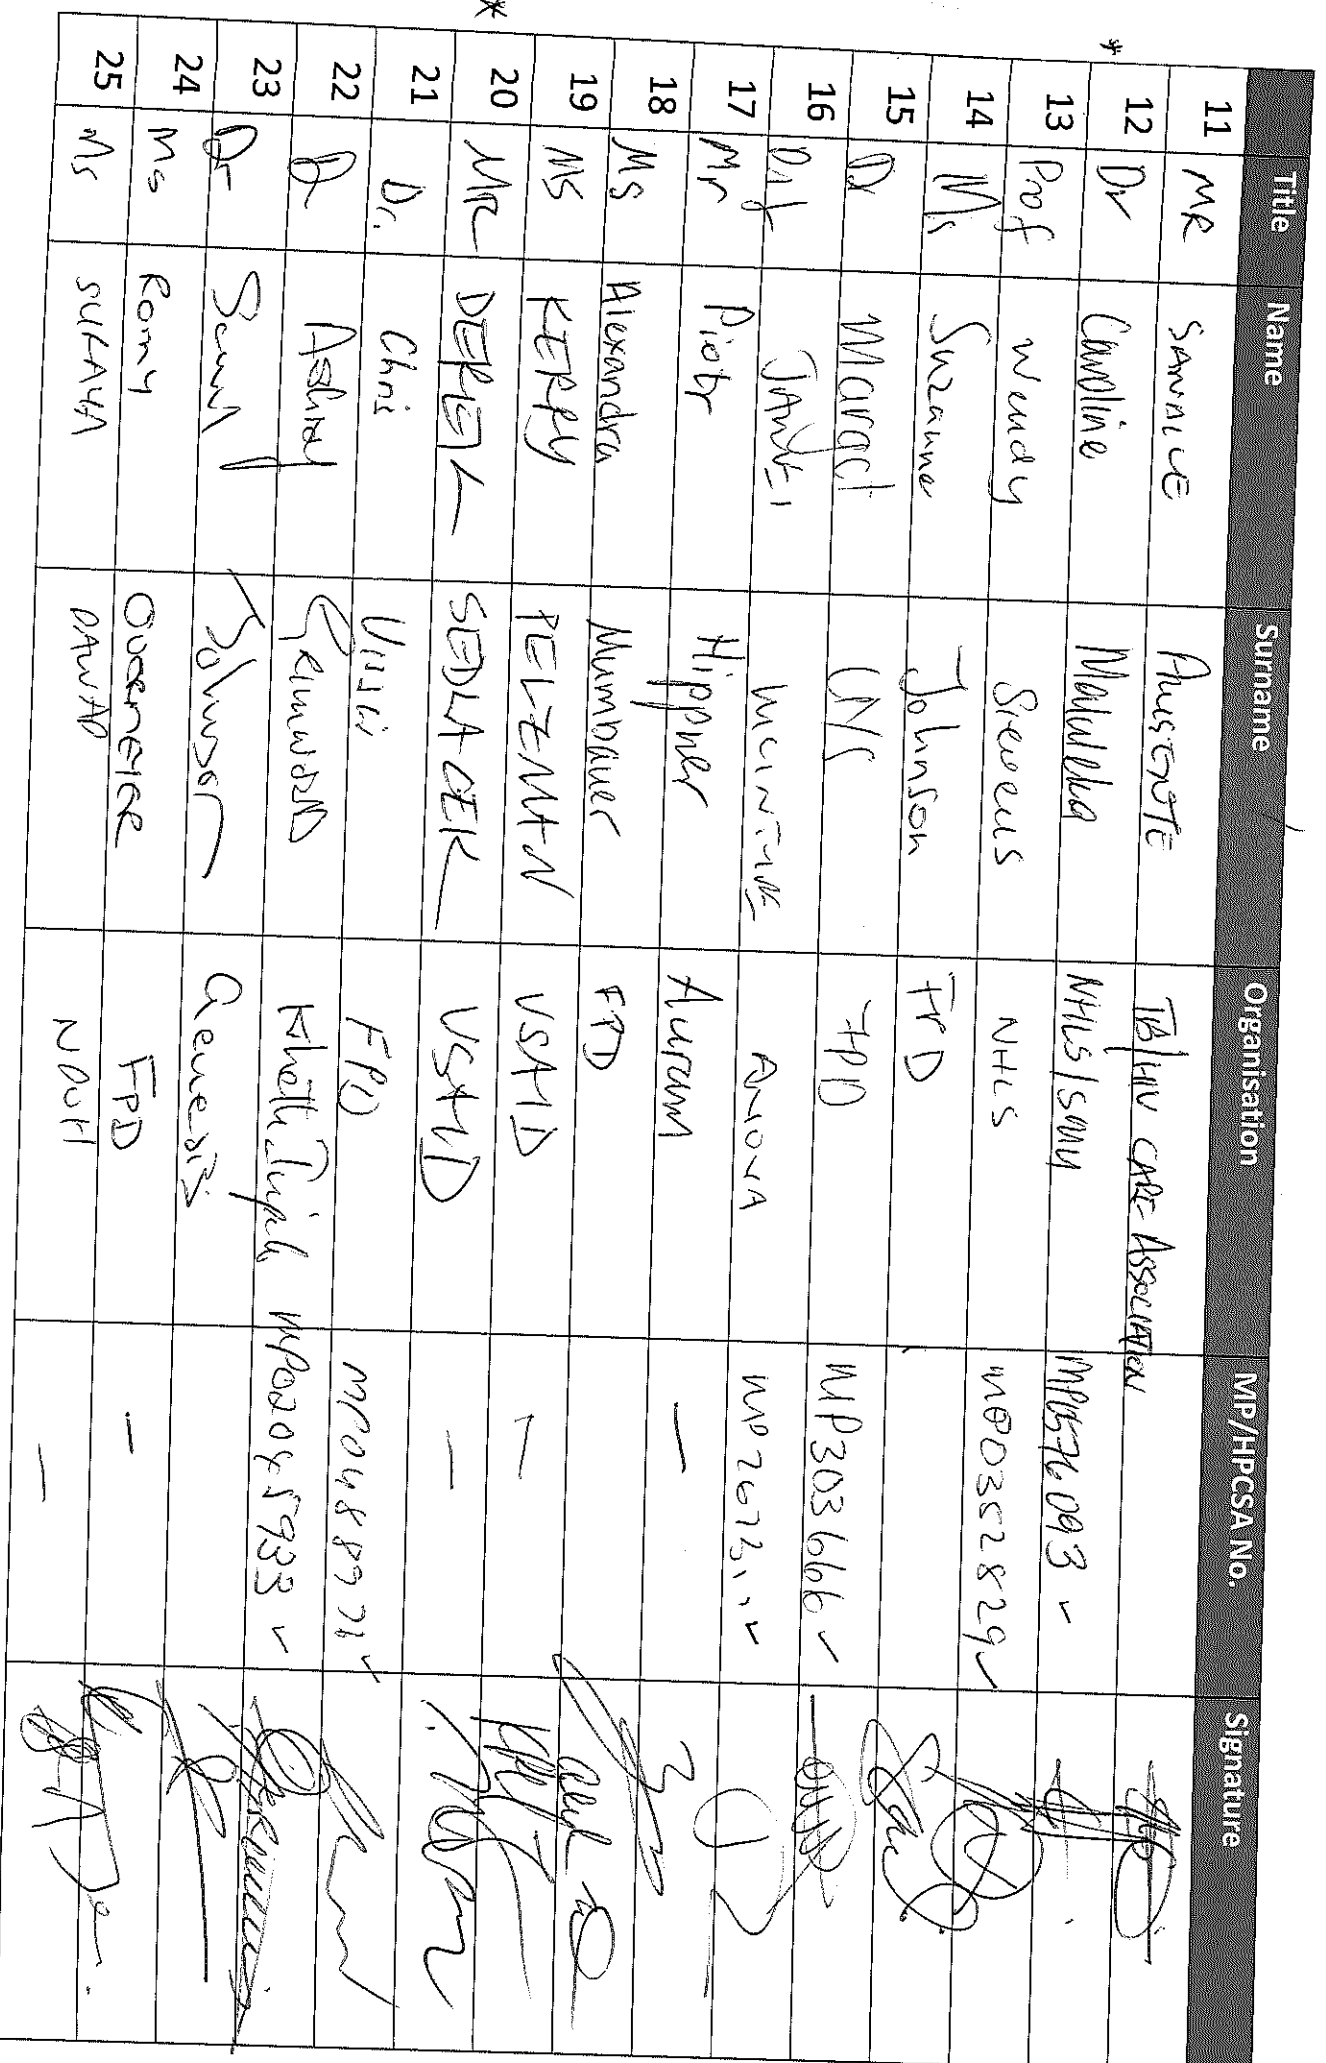 Title Name Surname Organisation MP/HPCSA No. Signature
11 MR SANALE ANGENTE TB/HIV CARE ASSOCIATION
* 12 Dr Caroline Maluleka NHLS/SMU MP0576093 ✓
13 Prof Wendy Stevens NHLS MP0352829 ✓
14 Ms Suzanne Johnson FPD
15 Dr Margot Uys FPD MP303666 ✓
16 Prof JAMES MCINTYRE ANOVA ✓
17 Mr Piotr Hippner Aurum —
18 Ms Alexandra Mumbauer FPD
19 MS KERRY PELZMAN USAID —
* 20 MR DEREK SEDLACEK USAID —
21 Dr. Chris FPD ✓
22 Dr Ashraf Grimwood Kheth'Impilo ✓
23 Dr Saul Johnson Genesis
24 Ms Romy Overmeyer FPD —
25 Ms SURAYA DAWAD NDOH —